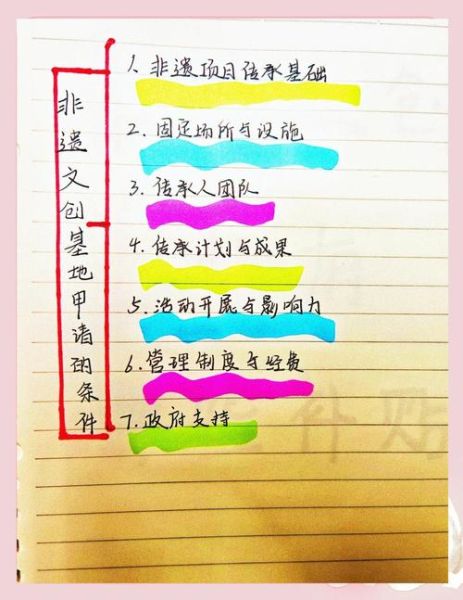 非遗文创基地申请的条件
1. 非遗项目传承基础
2. 固定场所与设施
3. 传承人团队
4. 传承计划与成果
5. 活动开展与影响力
6. 管理制度与经费
7. 政府支持
补贴